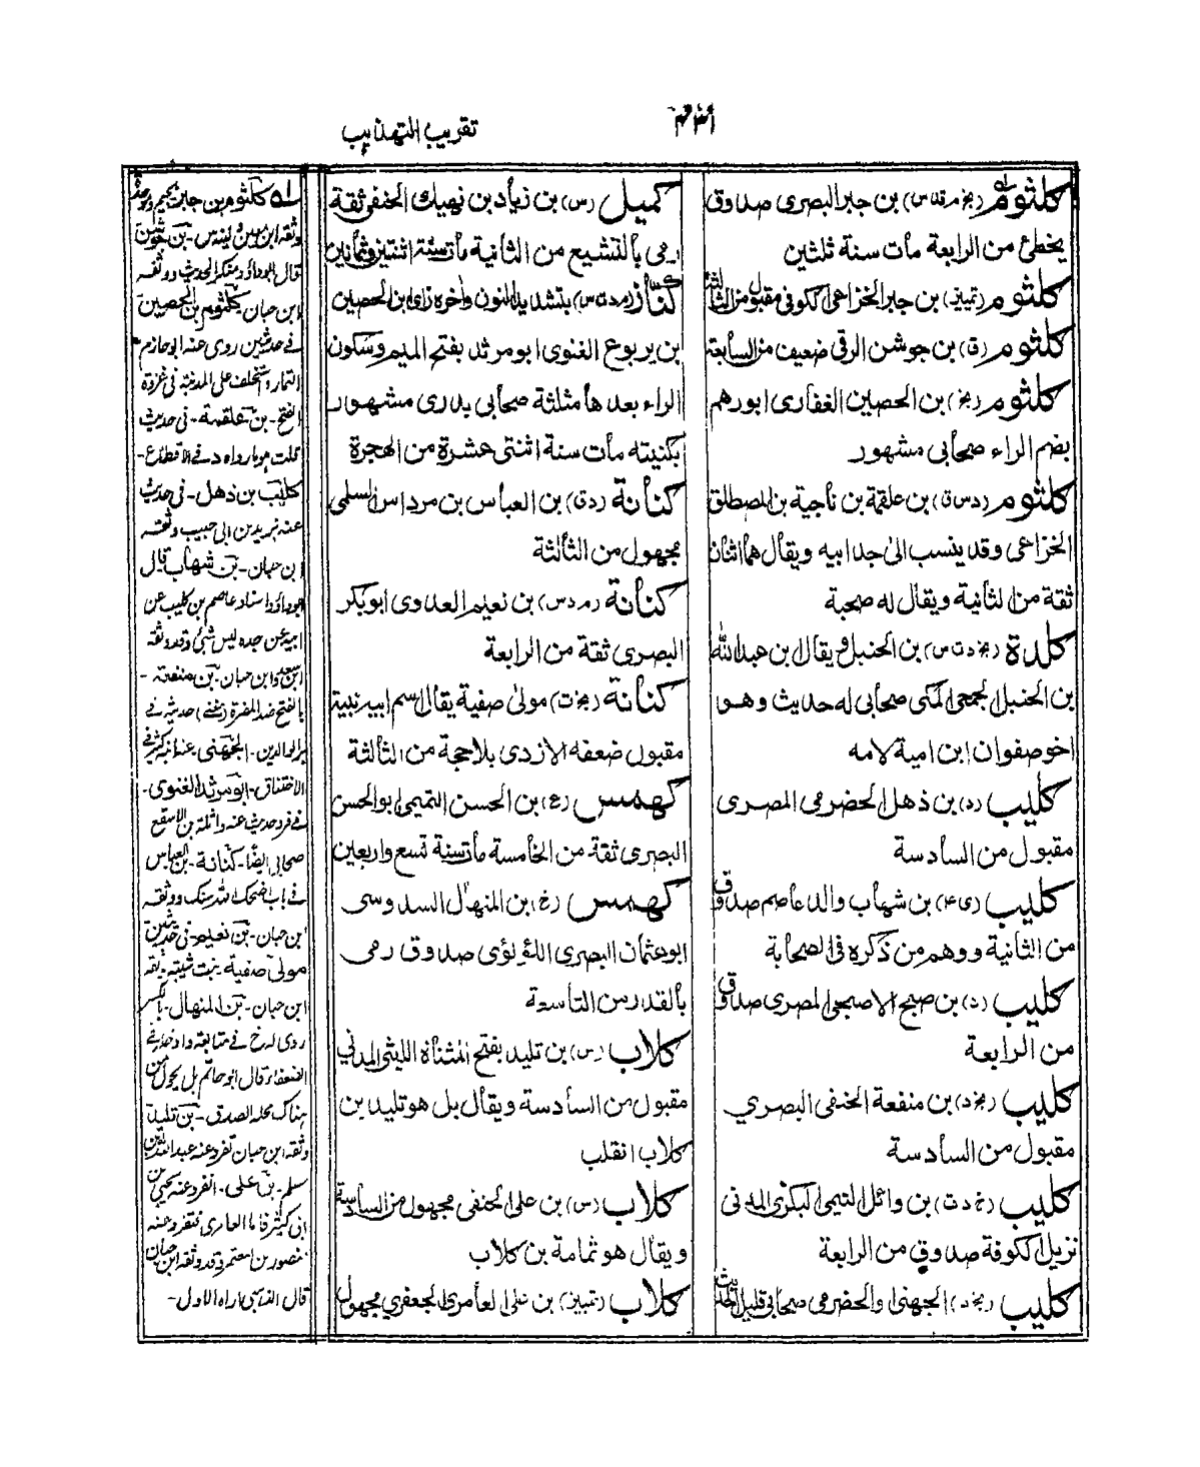 تقريب التهذيب
كلثوم بن جبر البصرى صدوق
يخطئ من الرابعة مات سنة ثلثين
كلثوم (تمييز) بن جبر الخزاعى الكوفى مقبول من الثالثة
كلثوم (ق) بن جوشن الرقى ضعيف من السابعة
كلثوم (بخ) بن الحصين الغفارى ابورهم
بضم الراء صحابى مشهور
كلثوم (دس ق) بن علقمة بن ناجية بن المصطلق
الخزاعى وقد ينسب الى جد ابيه ويقال هما اثنان
ثقة من الثانية ويقال له صحبة
كلدة (بخ د ت س) بن الحنبل ويقال ابن عبدالله
بن الحنبل الجمحى المكى صحابى له حديث وهو
اخو صفوان ابن امية لامه
كليب (د) بن ذهل الحضرمى المصرى
مقبول من السادسة
كليب (ى عم) بن شهاب والد عاصم صدوق
من الثانية ووهم من ذكره فى الصحابة
كليب (د) بن صبح الاصبحى المصرى صدوق
من الرابعة
كليب (بخ د) بن منفعة الحنفى البصري
مقبول من السادسة
كليب (خ د ت) بن وائل التيمى البكرى المدنى
نزيل الكوفة صدوق من الرابعة
كليب (بخ د) الجهنى او الحضرمى صحابى قليل الحديث
كميل (س) بن زياد بن نهيك النخعى ثقة
رمى بالتشيع من الثانية مات سنة اثنتين وثمانين
كناز (م د ت س) بتشديد النون واخره زاى ابن الحصين
بن يربوع الغنوى ابو مرثد بفتح الميم وسكون
الراء بعدها مثلثة صحابى بدرى مشهور
بكنيته مات سنة اثنتى عشرة من الهجرة
كنانة (د ق) بن العباس بن مرداس السلمى
مجهول من الثالثة
كنانة (م د س) بن نعيم العدوى ابوبكر
البصرى ثقة من الرابعة
كنانة (بخ ت) مولى صفية يقال اسم ابيه نبيه
مقبول ضعفه الازدى بلا حجة من الثالثة
كهمس (ع) بن الحسن التميمى ابو الحسن
البصرى ثقة من الخامسة مات سنة تسع واربعين
كهمس (خ) بن المنهال السدوسى
ابوعثمان البصرى اللؤلؤى صدوق رمى
بالقدر من التاسعة
كلاب (س) بن تليد بفتح المثناة الليثى المدنى
مقبول من السادسة ويقال بل هو تليد بن
كلاب انقلب
كلاب (س) بن على الحنفى مجهول من السادسة
ويقال هو ثمامة بن كلاب
كلاب (تمييز) بن على العامرى الجعفري مجهول
قال ابوداؤد منكر الحديث ووثقه
ابن حبان كلثوم بن الحصين
فى حديثين روى عنه ابوحازم
التمار واستخلف على المدينة فى غزوة
الفتح - بن علقمة - فى حديث
كليب بن ذهل - فى حديث
عنه يزيد بن ابى حبيب وثقه
ابن حبان - بن شهاب قال
ابوداؤد اسناد عاصم بن كليب عن
ابيه عن جده ليس شئ وقد وثقه
ابن سعد وابن حبان - بن منفعة -
الاختناق - ابو مرثد الغنوى -
فى فرد حديث عنه واثلة بن الاسقع
صحابى ايضًا - كنانة - بن العباس
ابن حبان - بن نعيم - فى حديثين
ابن حبان - بن المنهال -
الضعفاء قال ابو حاتم بل يحول من
هناك محله الصدق - بن تليد
وثقه ابن حبان تفرد عنه
قال الذهبى اراه الاول -